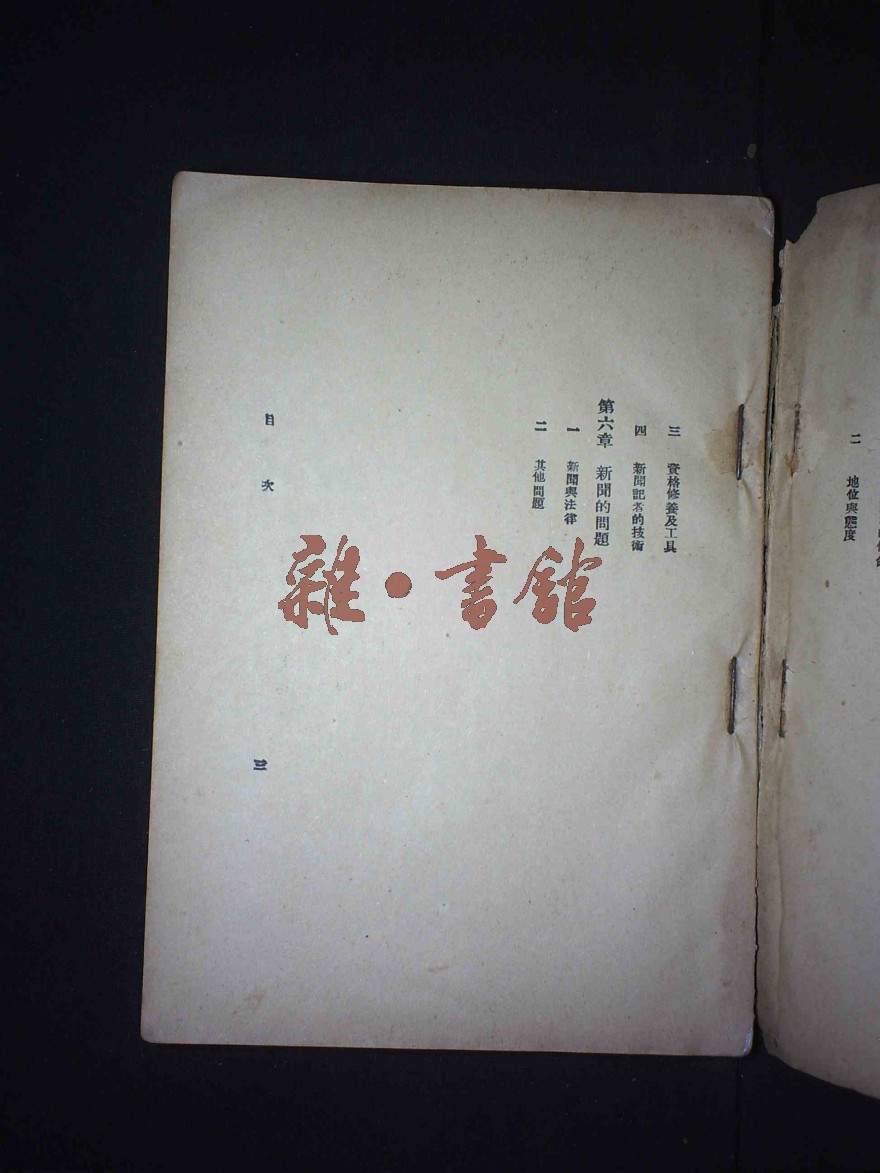 二 地位與態度
三 資格修養及工具
四 新聞記者的技術
第六章 新聞的問題
一 新聞與法律
二 其他問題
目次
三
雜·書館